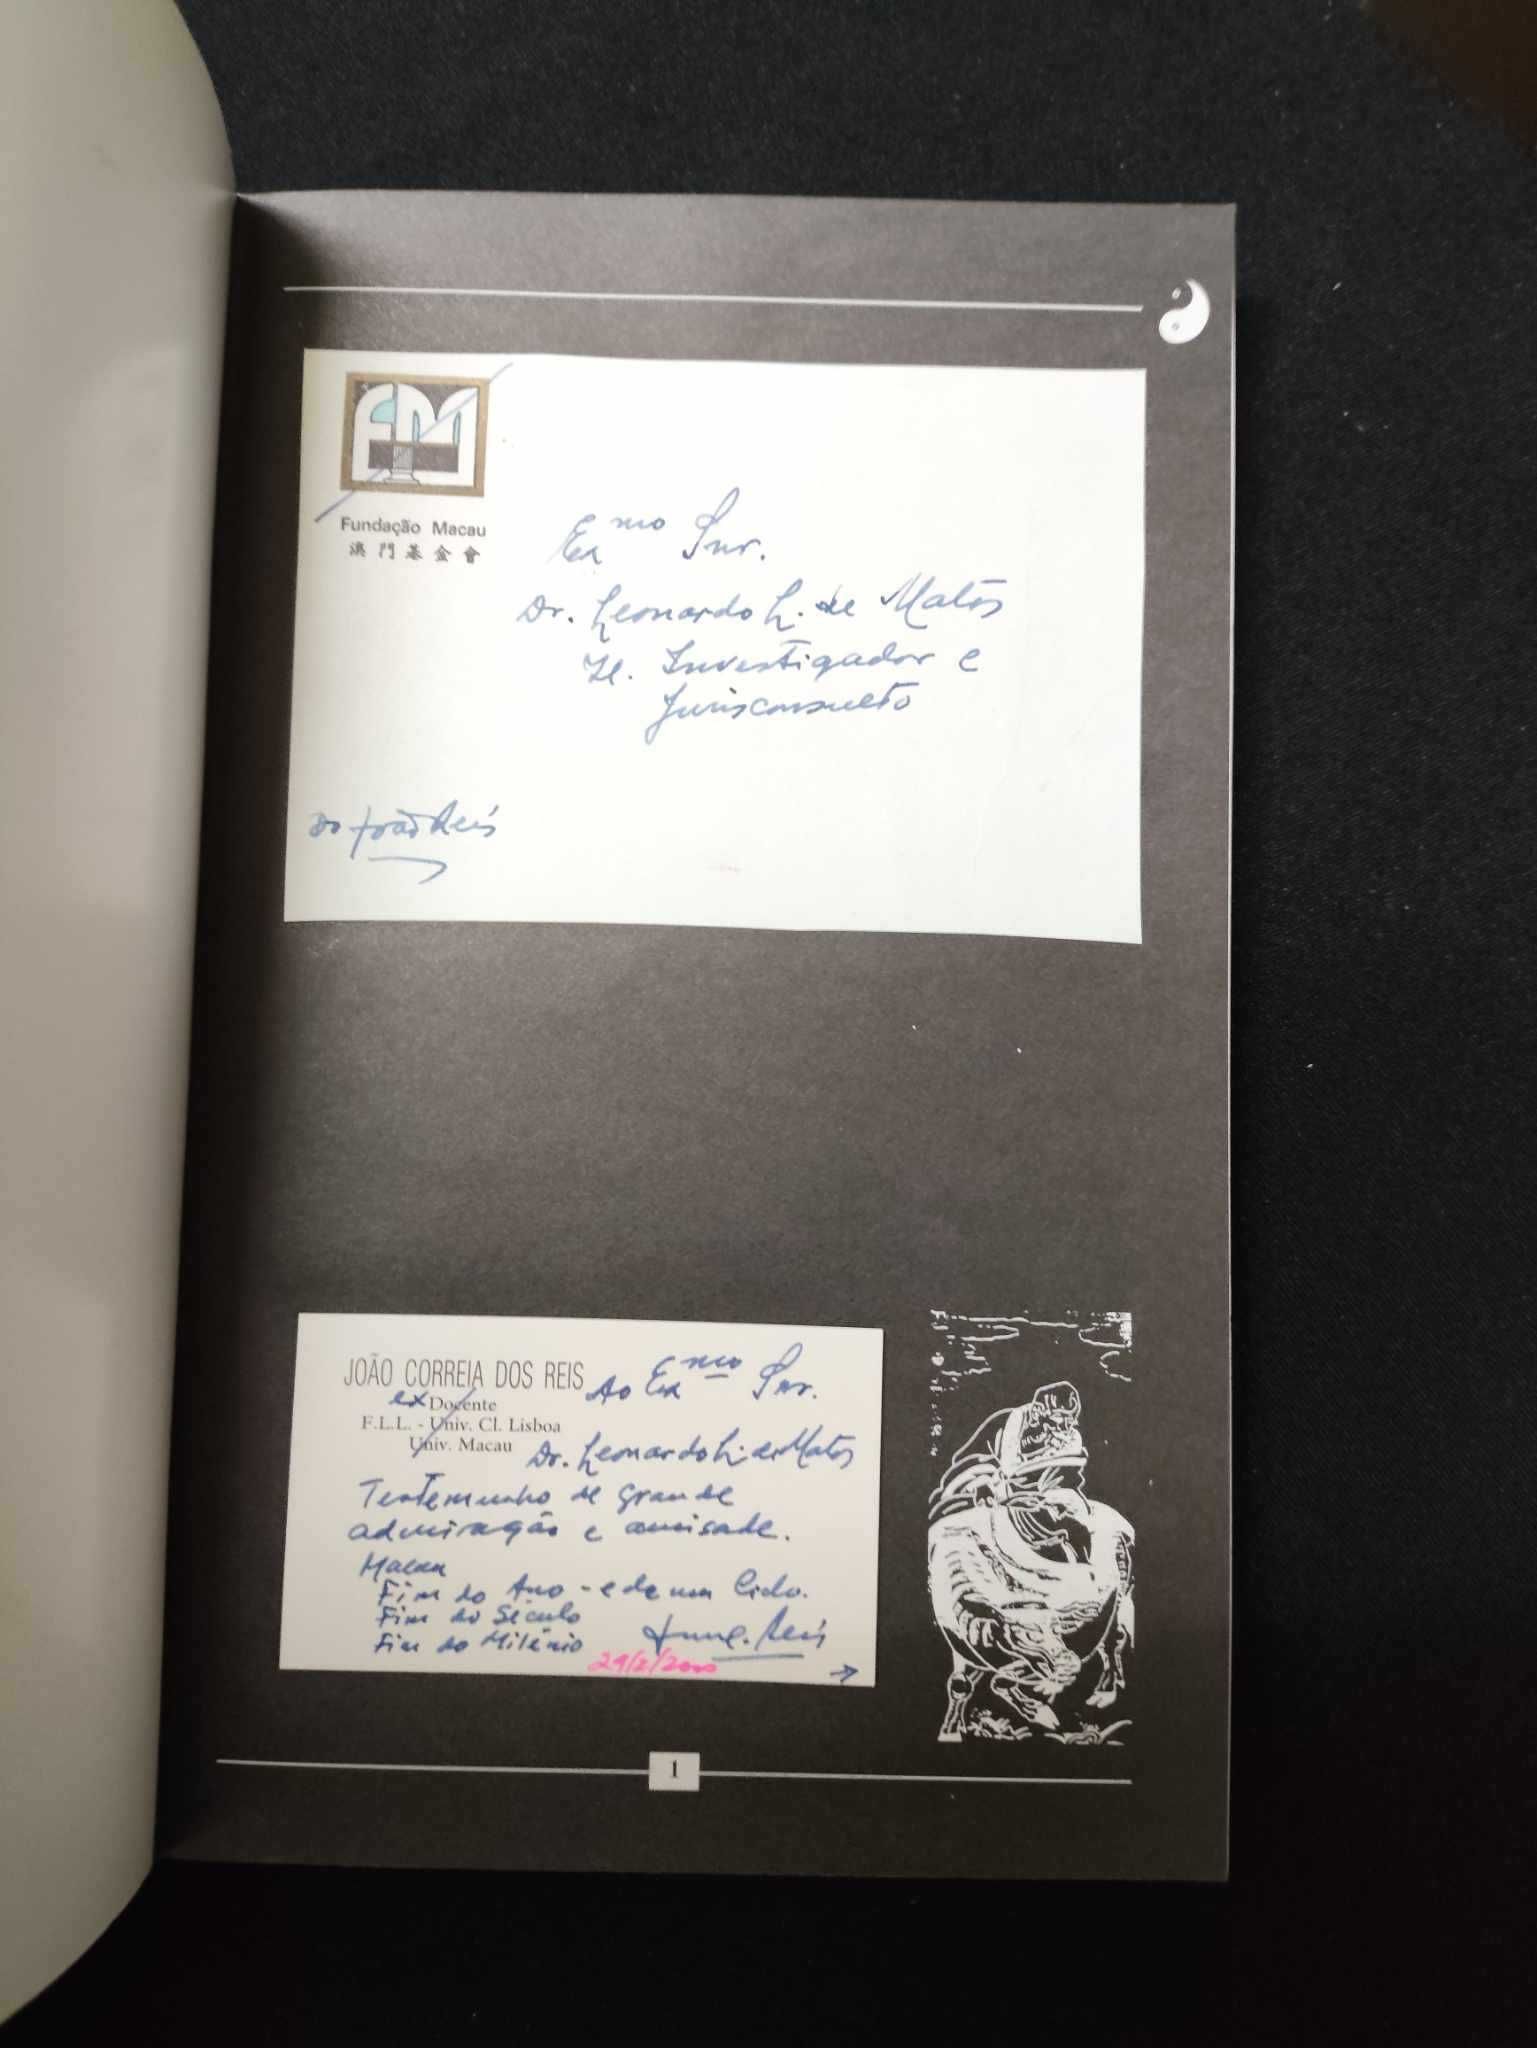 FM
Fundação Macau
澳門基金會
Ex^mo Snr.
Dr. Leonardo L. de Matos
Il. Investigador e
Jurisconsulto
Do João Reis
JOÃO CORREIA DOS REIS
ex Docente
F.L.L. - Univ. Cl. Lisboa
Univ. Macau
Ao Ex^mo Snr.
Dr. Leonardo L. de Matos
Testemunho de grande
admiração e amizade.
Macau
Fim do Ano - e de um Ciclo.
Fim do Século
Fim do Milénio
Reis
29/2/2000
1